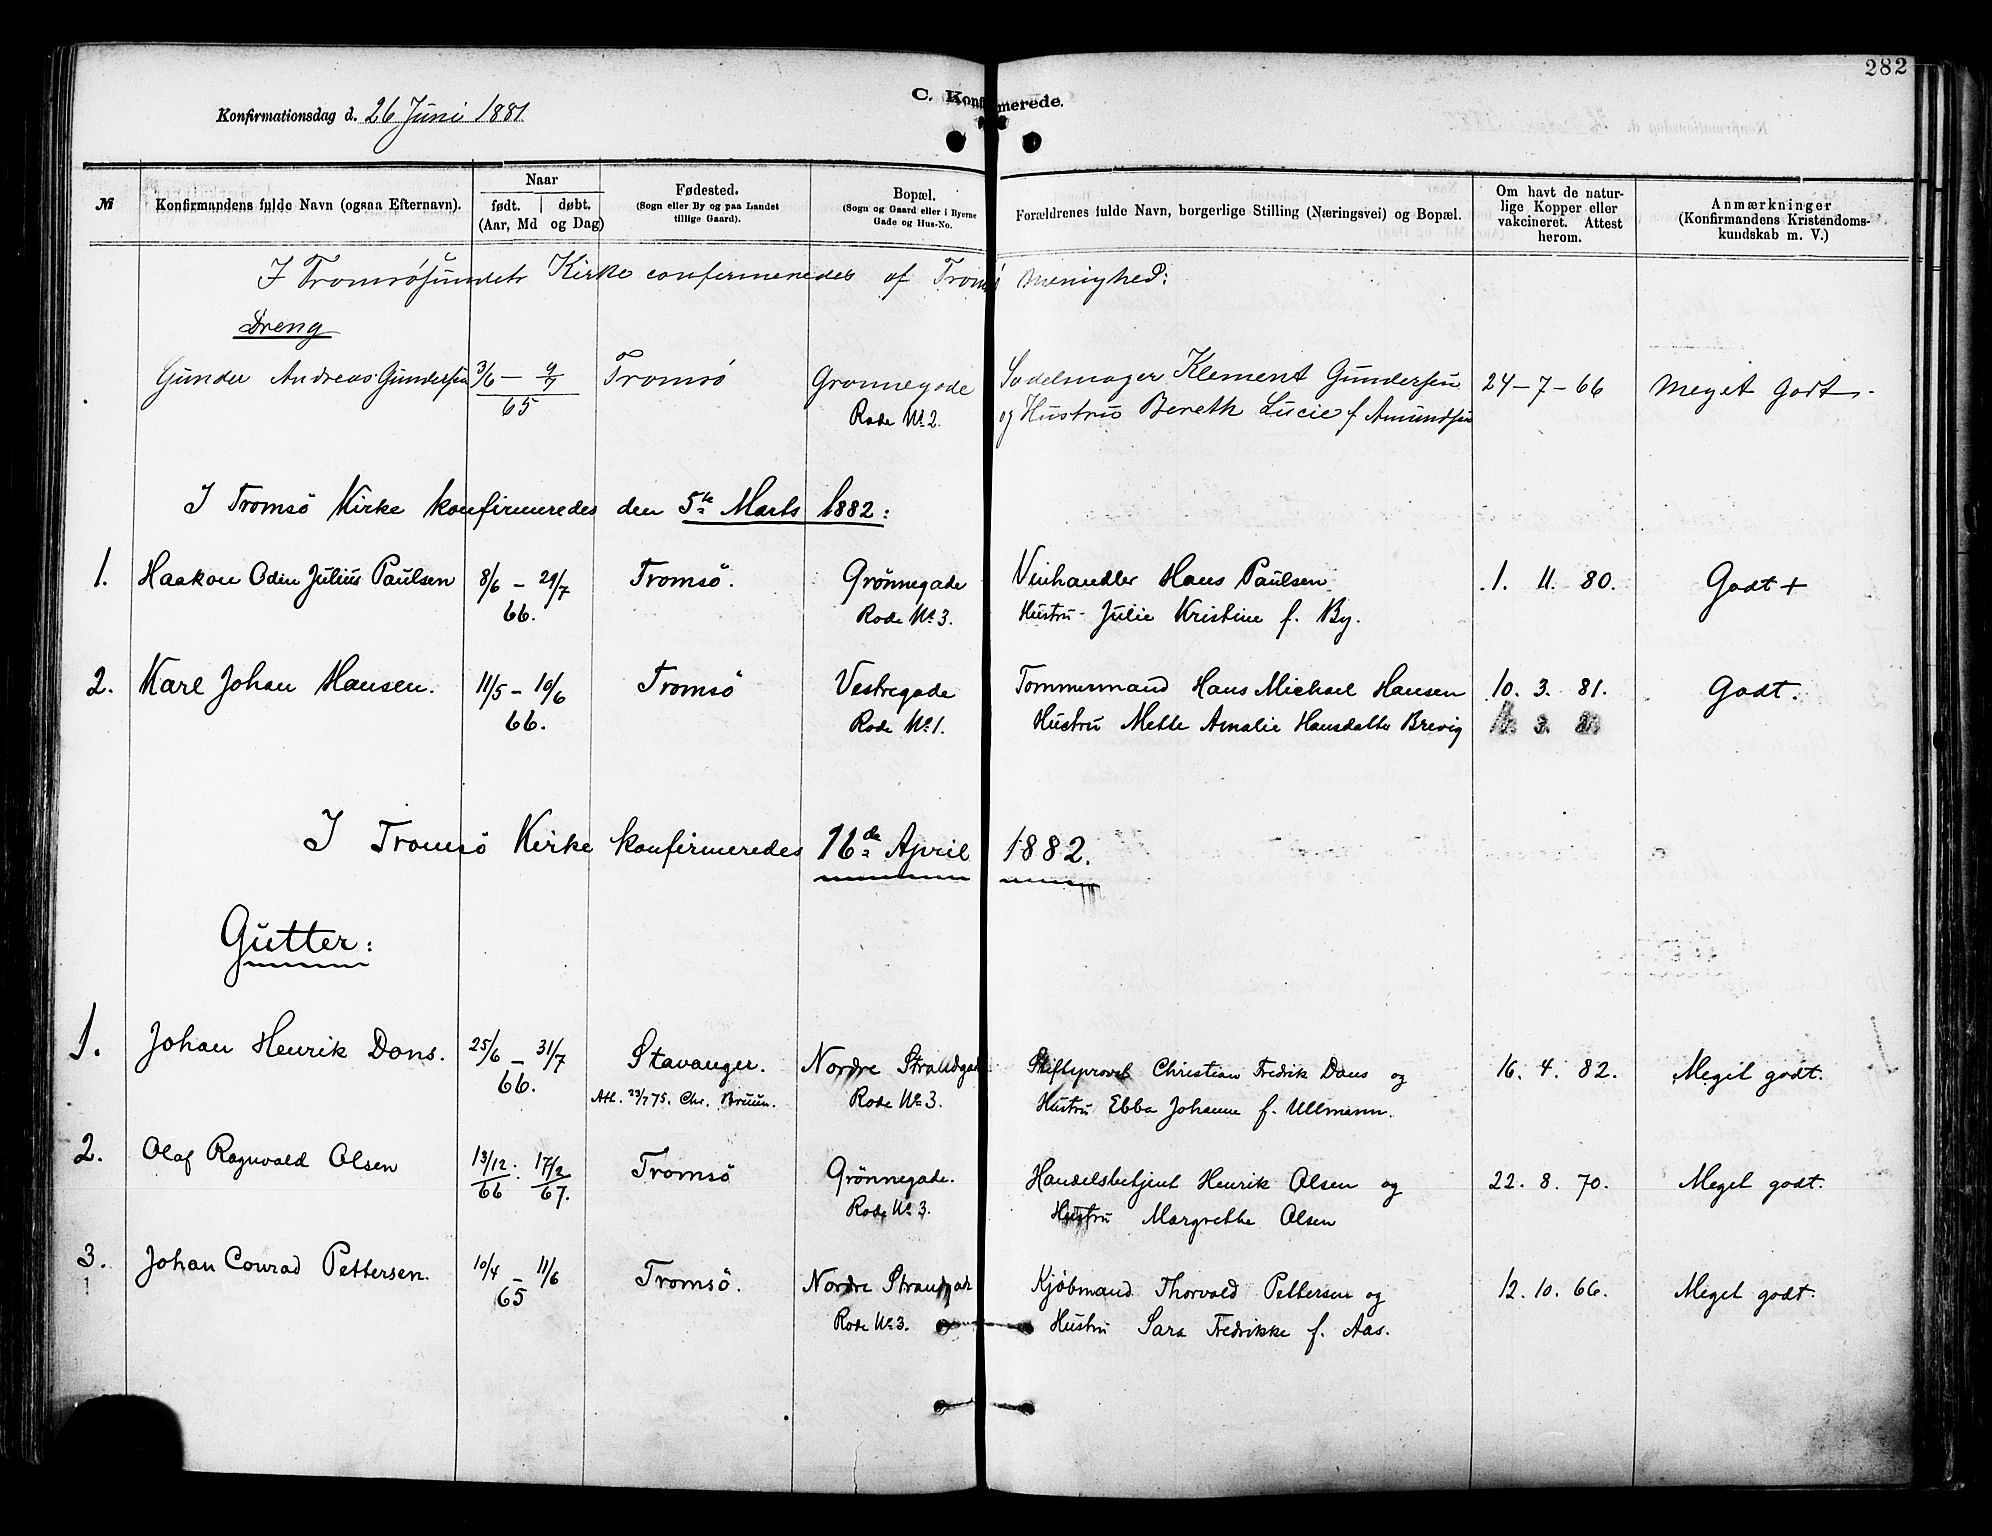 282
C. Konfirmerede.
Konfirmationsdag d. 26 Juni 1881
№ Konfirmandens fulde Navn (ogsaa Efternavn). Naar født. døbt. (Aar, Md og Dag) Fødested. (Sogn eller By og paa Landet tillige Gaard). Bopæl. (Sogn og Gaard eller i Byerne Gade og Hus-No. Forældrenes fulde Navn, borgerlige Stilling (Næringsvei) og Bopæl. Om havt de naturlige Kopper eller vakcineret. Attest herom. Anmærkninger (Konfirmandens Kristendomskundskab m. V.)
I Tromsøsundets Kirke confirmeredes af Tromsø Menighed:
Dreng
Gunder Andreas Gundersen 3/6 – 9/7 Tromsø Grønnegade Sadelmager Klement Gundersen 24 – 7 – 66 Meget godt.
65 Rode No 2. og Hustru Bereth Lucie f Amundsen
I Tromsö Kirke konfirmeredes den 5te Marts 1882:
1. Haakon Odin Julius Paulsen 8/6 – 29/7 Tromsö. Grönnegade Vinhandler Hans Paulsen 1. 11. 80. Godt +
66. Rode No 3. Hustru Julie Kristine f. By.
2. Karl Johan Hansen. 11/5 – 10/6 Tromsö Vestregade Tommermand Hans Michael Hansen 10. 3. 81. Godt.
66. Rode No 1. Hustru Mette Amalie Hansdatter Brevig
I Tromsö Kirke konfirmeredes 16de April 1882.
Gutter:
1. Johan Henrik Dons. 25/6 – 31/7 Stavanger. Nordre Strandgade Stiftsprovst Christian Fredrik Dons og 16. 4. 82. Meget godt.
66. Att. 23/7 75. Chr. Bruun. Rode No 3. Hustru Ebba Johanne f. Ullmann.
2. Olaf Ragnvald Olsen 13/12 17/2 Tromsö Grönnegade. Handelsbetjent Henrik Olsen og 22. 8. 70. Meget godt.
66 67. Rode No 3. Hustru Margrethe Olsen
3. Johan Conrad Pettersen. 10/4 – 11/6 Tromsö. Nordre Strandgade Kjöbmand Thorvald Pettersen og 12. 10. 66. Meget godt.
65 Rode No 3. Hustru Sara Fredrikke f. Aas.